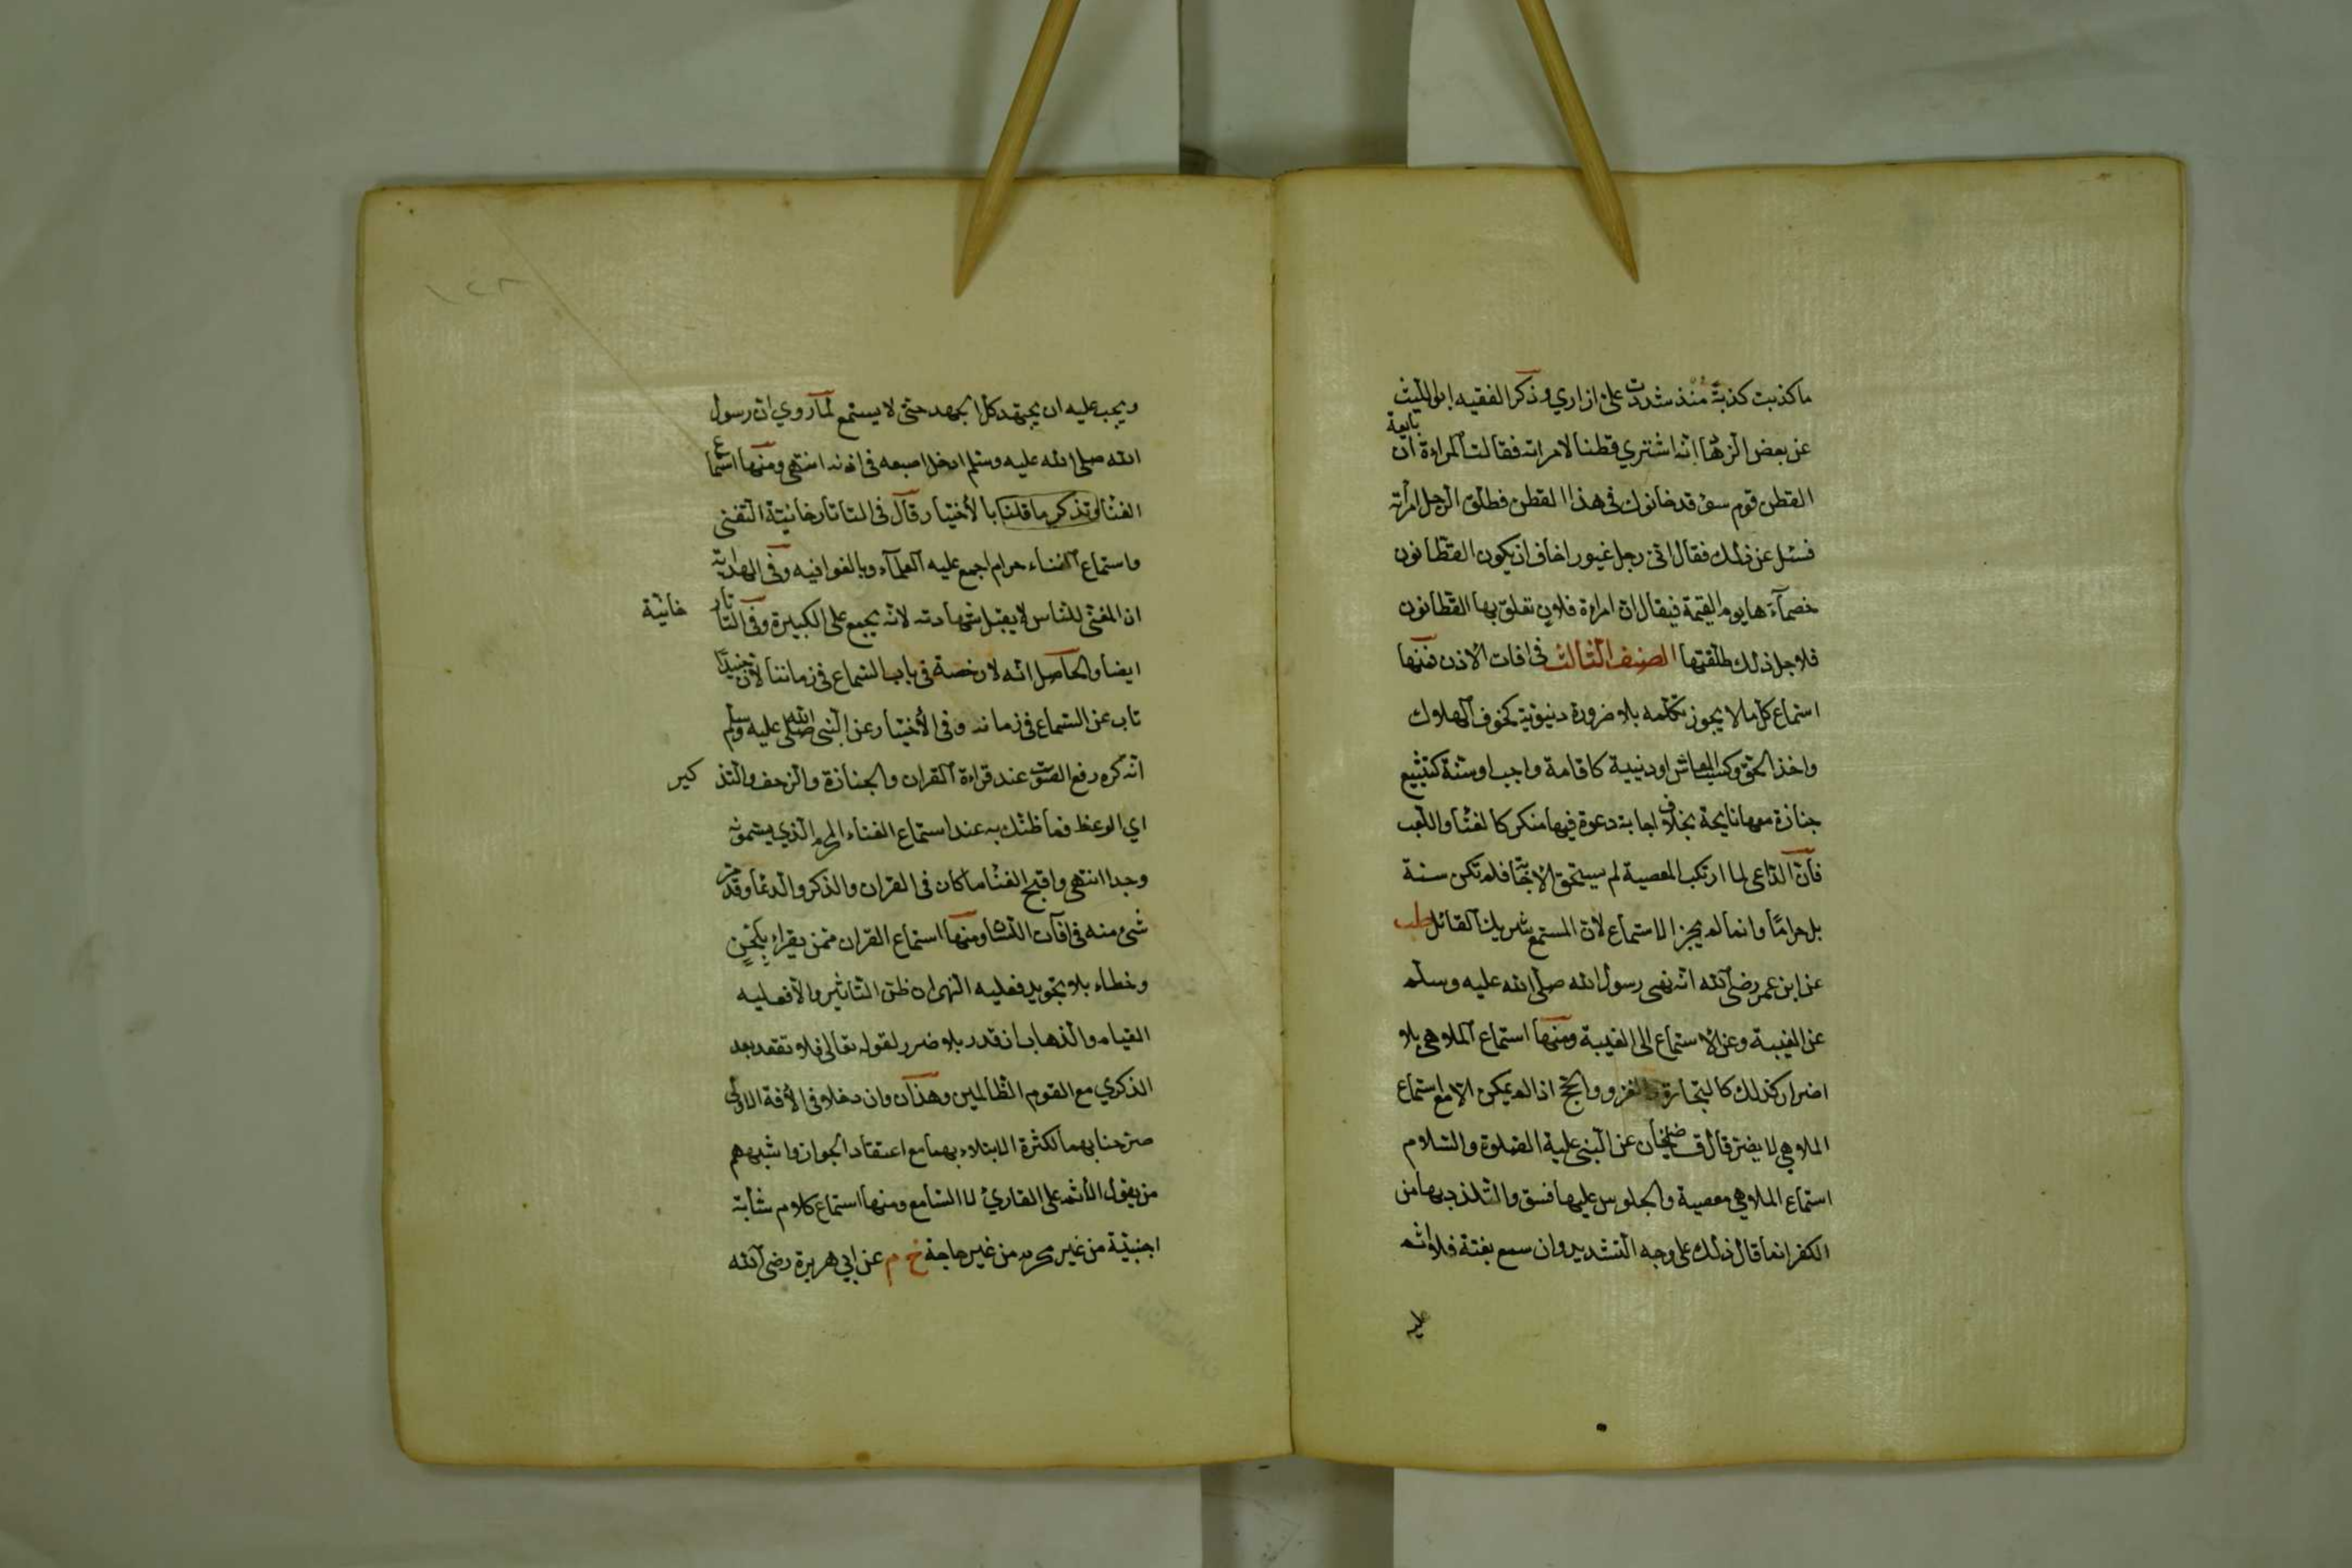 ما كذبت كذبة منذ شددت على ازاري وذكر الفقيه ابو الليث
عن بعض الزهاد انه اشتري قطنا لامراته فقالت المراءة ان بايعة
القطن قوم سوء قد خانوك في هذا القطن فطلق الرجل امرأته
فسئل عن ذلك فقال اني رجل غيور اخاف ان يكون القطانون
خصمآءها يوم القيمة فيقال ان امراءة فلان تعلق بها القطانون
فلاجل ذلك طلقتها الصنف الثالث في افات الاذن فمنها
استماع كل ما لا يجوز تكلمه بلا ضرورة دنيوية كخوف الهلاك
واخذ الحق وكسب المعاش او دينية كاقامة واجب او سنة كتشييع
جنازة معها نايحة بخلاف اجابة دعوة فيها منكر كالغنا واللعب
فان الداعى لما ارتكب المعصية لم يستحق الاجابة فلم تكن سنة
بل حراما وانما لم يجز الاستماع لان المستمع شريك القائل طب
عن ابن عمر رضى الله انه نهى رسول الله صلى الله عليه وسلم
عن الغيبة وعن الاستماع الى الغيبة ومنها استماع الملاهي بلا
اضرار كذلك كالتجارة والغزو والحج اذا لم يمكن الا مع استماع
الملاهي لا يضر قال قاضيخان عن النبى عليه الصلوة والسلام
استماع الملاهي معصية والجلوس عليها فسق والتلذذ بها من
الكفر انما قال ذلك على وجه التشديد وان سمع بغتة فلا اثم
عليه
١٤٨
ويجب عليه ان يجتهد كل الجهد حتى لا يستمع لما روي ان رسول
الله صلى الله عليه وسلم ادخل اصبعه في اذنه انتهى ومنها استماع
الغنا وتذكر ما قلنا بالاختيار قال في التاتارخانيتة التغنى
واستماع الغناء حرام اجمع عليه العلمآء وبالغوا فيه وفى الهداية
ان المغنى للناس لا يقبل شهادته لانه يجمع على الكبيرة وفى التاتار خانية
ايضا والحاصل انه لا رخصة فى باب السماع فى زماننا لان جنيدا
تاب عن السماع فى زمانه وفى الاختيار عن النبى صلى الله عليه وسلم
انه كره رفع الصوت عند قراءة القران والجنازة والزحف والتذ كير
اي الوعظ فما ظنك به عند استماع الغناء المحرم الذي يسمونه
وجدا انتهى واقبح الغنا ما كان فى القران والذكر والدعا وقد مر
شىء منه فى افات اللسان ومنها استماع القران ممن يقراء بلحن
وخطاء بلا تجويد فعليه النهى ان ظن التاثير والا فعليه
القيام والذهاب ان قدر بلا ضرر لقوله تعالى فلا تقعد بعد
الذكري مع القوم الظالمين وهذان وان دخلا فى الافة الاولى
صرحنا بهما لكثرة الابتلاء بهما مع اعتقاد الجواز واشبههم
من يقول الاثم على القاري لا السامع ومنها استماع كلام شابة
اجنبية من غير محرم من غير حاجة خ م عن ابي هريرة رضى الله